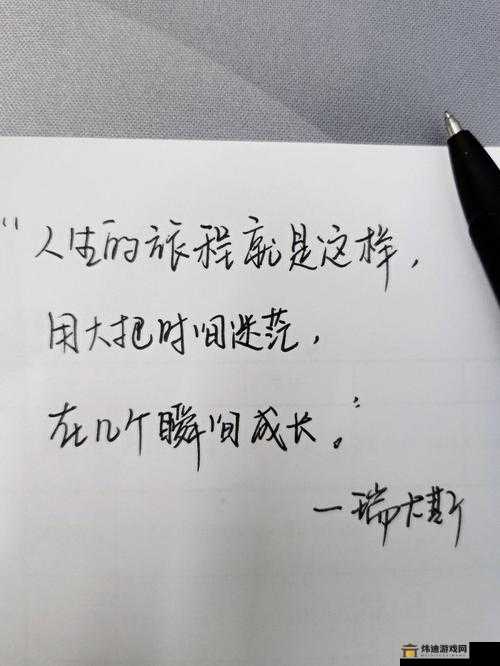 “人生的旅程就是这样，
用大把时间迷茫，
在几个瞬间成长。”
一瑞卡斯
炜迪游戏网